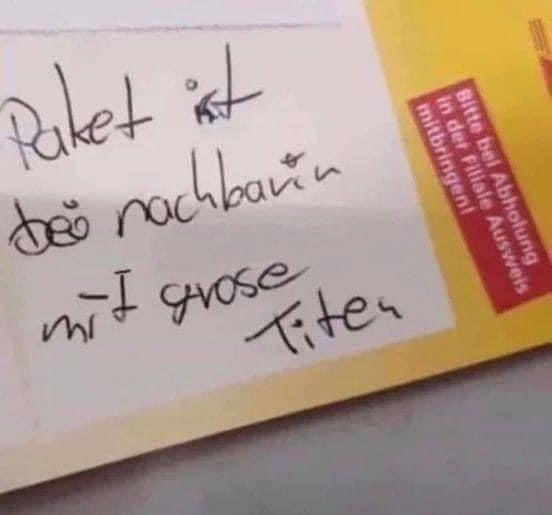 Paket ist
bei nachbarin
mit grose
Titen
Bitte bei Abholung
in der Filiale Ausweis
mitbringen!